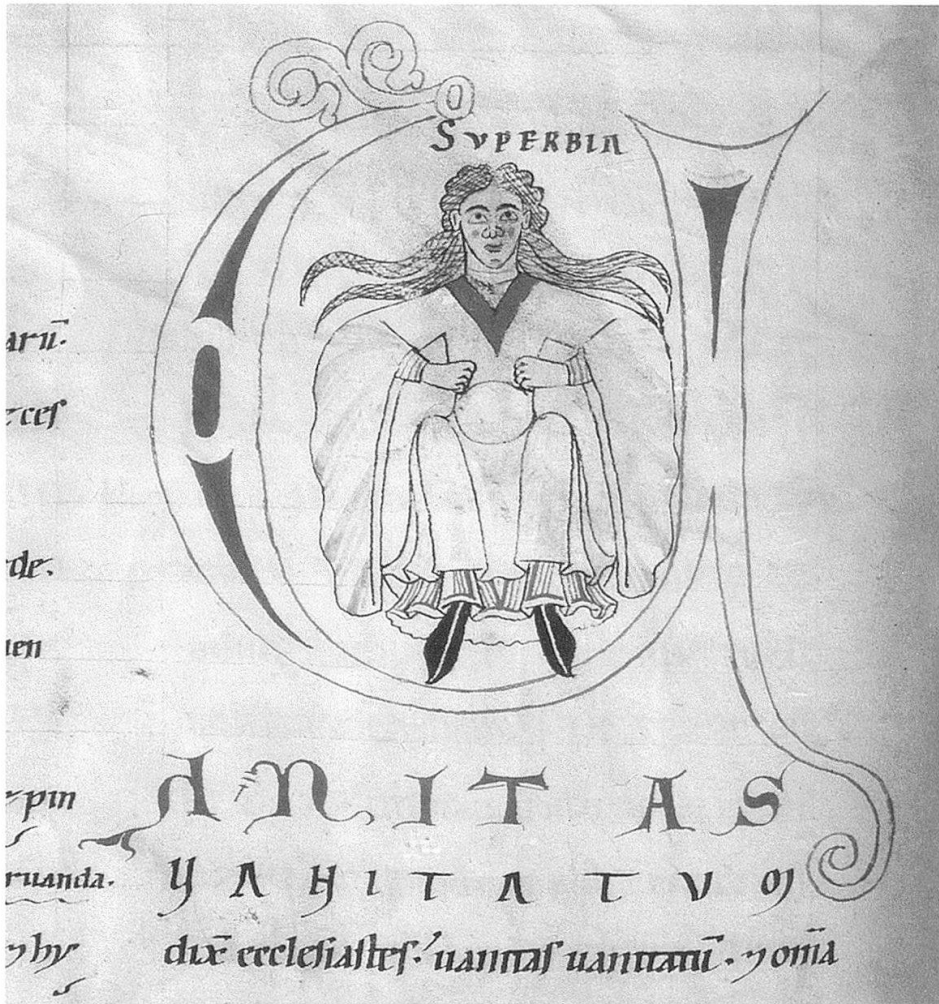 SVPERBIA
arū.
ces
de.
uen
pin
ruanda.
hy
ANITAS
VANITATVM
dix̄ ecclesiastes. uanitas uanitatū. ⁊ om̄a